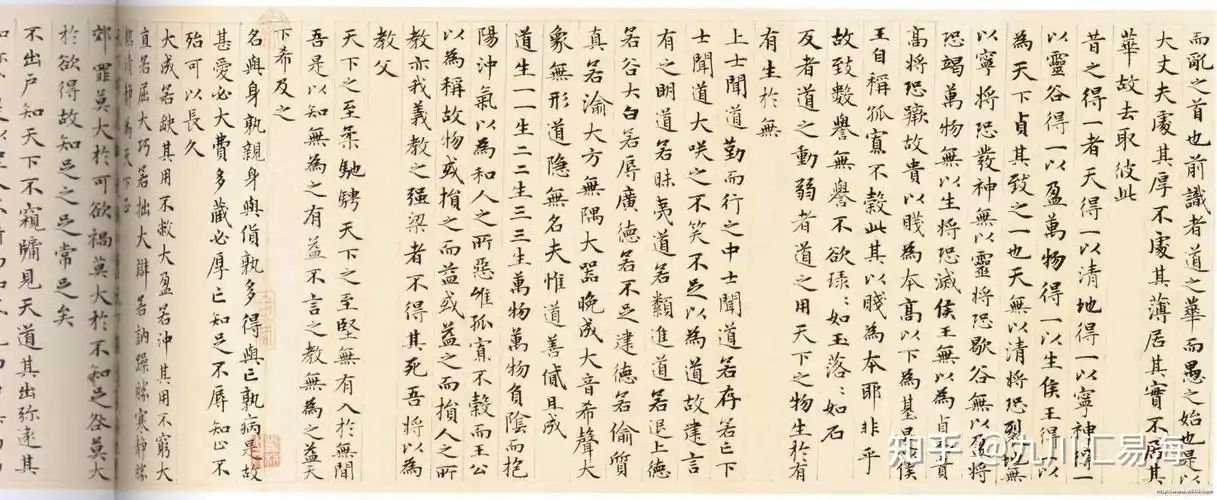 而亂之首也前識者道之華而愚之始也是以
大丈夫處其厚不處其薄居其實不居其
華故去取彼此
昔之得一者天得一以清地得一以寧神得一
以靈谷得一以盈萬物得一以生侯王得一以
為天下貞其致之一也天無以清將恐裂地無
以寧將恐發神無以靈將恐歇谷無以盈將
恐竭萬物無以生將恐滅侯王無以為貞而貴
高將恐蹶故貴以賤為本高以下為基是侯
王自稱孤寡不穀此其以賤為本耶非乎
故致數譽無譽不欲琭〻如玉落〻如石
反者道之動弱者道之用天下之物生於有
有生於無
上士聞道勤而行之中士聞道若存若亡下
士聞道大咲之不笑不足以為道故建言
有之明道若昧夷道若類進道若退上德
若谷大白若辱廣德若不足建德若偷質
真若渝大方無隅大器晚成大音希聲大
象無形道隱無名夫惟道善貸且成
道生一一生二二生三三生萬物萬物負陰而抱
陽沖氣以為和人之所惡惟孤寡不穀而王公
以為稱故物或損之而益或益之而損人之所
教亦我義教之强梁者不得其死吾將以為
教父
天下之至柔馳騁天下之至堅無有入於無間
吾是以知無為之有益不言之教無為之益天
下希及之
名與身孰親身與貨孰多得與亡孰病是故
甚愛必大費多藏必厚亡知足不辱知止不
殆可以長久
大成若缺其用不敝大盈若沖其用不窮大
直若屈大巧若拙大辯若訥躁勝寒靜勝
郊罪莫大於可欲禍莫大於不知足咎莫大
於欲得故知足之足常足矣
不出戶知天下不窺牖見天道其出弥遠其
知乎 @九川汇易海